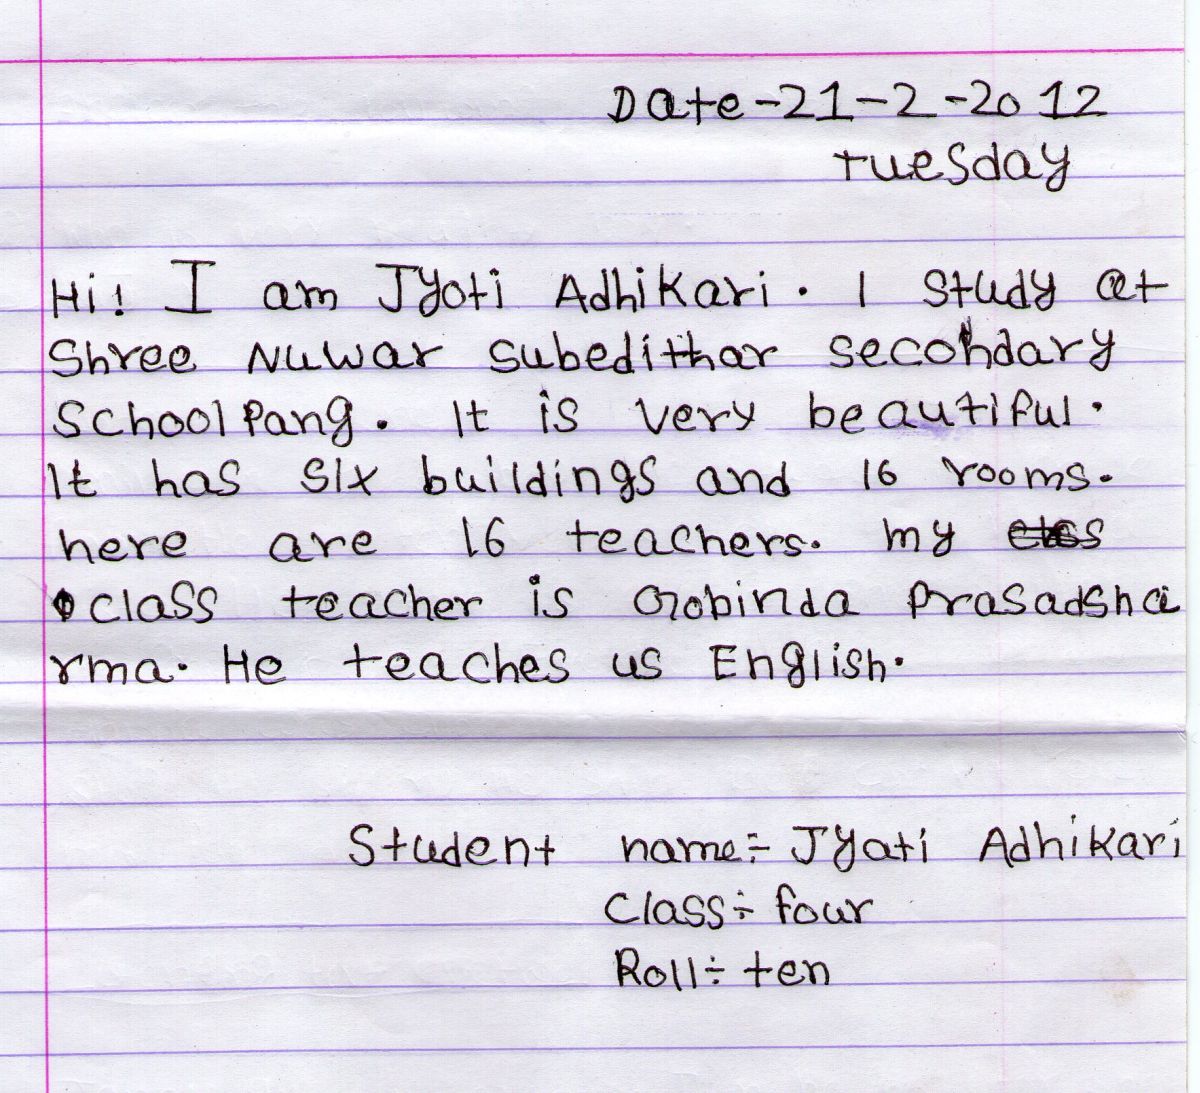 Date-21-2-2012
tuesday
Hi! I am Jyoti Adhikari. I study at
Shree Nuwar subedithar secondary
school Pang. It is very beautiful.
It has six buildings and 16 rooms.
here are 16 teachers. my
class teacher is Gobinda Prasadsha
rma. He teaches us English.
Student name÷ Jyati Adhikari
Class÷ four
Roll÷ ten